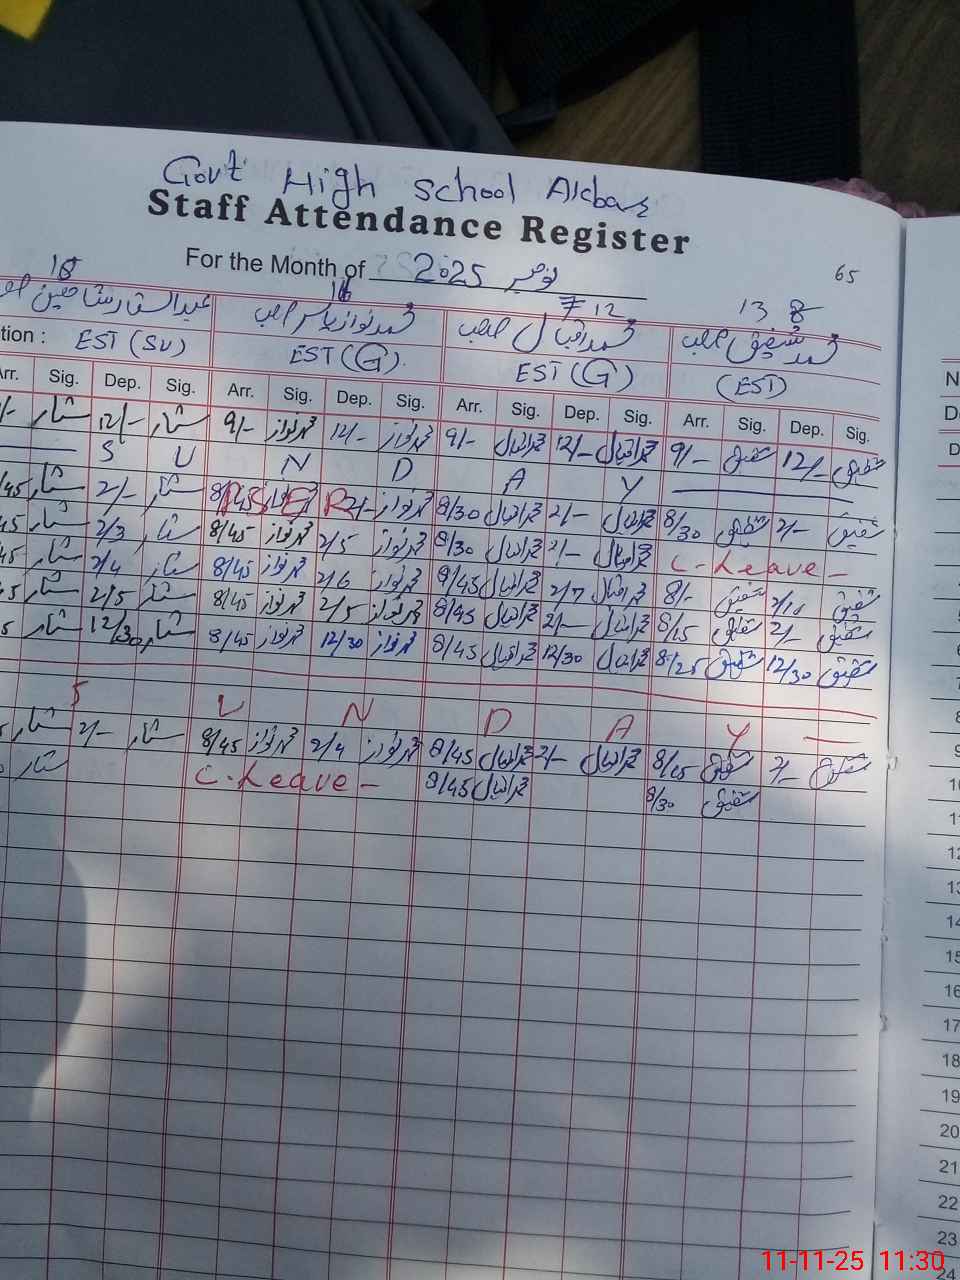 Govt High School Akbar
Staff Attendance Register
For the Month of 2025 نومبر
65
16 16 7 12 13 8
عبدالستار شاھین محمد نواز یاسر صاحب محمد اقبال صاحب محمد شفیق صاحب
tion : EST (SV) EST (G) EST (G) (EST)
Arr. Sig. Dep. Sig. Arr. Sig. Dep. Sig. Arr. Sig. Dep. Sig. Arr. Sig. Dep. Sig.
/- ستار 12/- ستار 9/- محمد نواز 12/- محمد نواز 9/- محمد اقبال 12/- محمد اقبال 9/- شفیق 12/- شفیق
S U N D A Y
/45 ستار 2/- ستار 8/45 2/- محمد نواز 8/30 محمد اقبال 2/- محمد اقبال 8/30 شفیق 2/- شفیق
45 ستار 2/3 ستار 8/45 محمد نواز 2/5 محمد نواز 8/30 محمد اقبال 2/- محمد اقبال C-Leave -
45 ستار 2/4 ستار 8/45 محمد نواز 2/6 محمد نواز 8/45 محمد اقبال 2/7 محمد اقبال 8/- شفیق 2/10 شفیق
5 ستار 2/5 ستار 8/45 محمد نواز 2/5 محمد نواز 8/45 محمد اقبال 2/- محمد اقبال 8/15 شفیق 2/- شفیق
5 ستار 12/30 ستار 8/45 محمد نواز 12/30 محمد نواز 8/45 محمد اقبال 12/30 محمد اقبال 8/25 شفیق 12/30 شفیق
S U N D A Y —
ستار 2/- ستار 8/45 محمد نواز 2/4 محمد نواز 8/45 محمد اقبال 2/- محمد اقبال 8/15 شفیق 2/- شفیق
ستار C-Leave - 8/45 محمد اقبال 8/30 شفیق
N
D
D
9
10
11
12
13
14
15
16
17
18
19
20
21
22
23
24
11-11-25 11:30